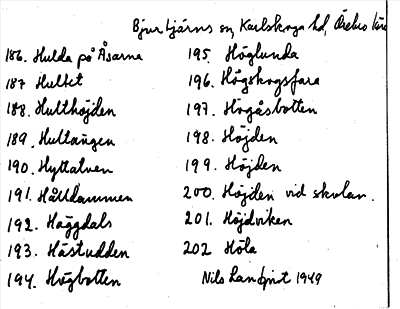 Bjurtjärns sn, Karlskoga hd, Örebro län
186. Hulda på Åsarna
187 Hultet
188. Hulthöjden
189. Hultängen
190. Hyttälven
191. Hålldammen
192. Häggdals
193. Hästudden
194. Högbotten
195. Höglunda
196. Högskogsfara
197. Högåsbotten
198. Höjden
199. Höjden
200. Höjden vid skolan.
201. Höjdviken
202 Höla
Nils Landqvist 1949